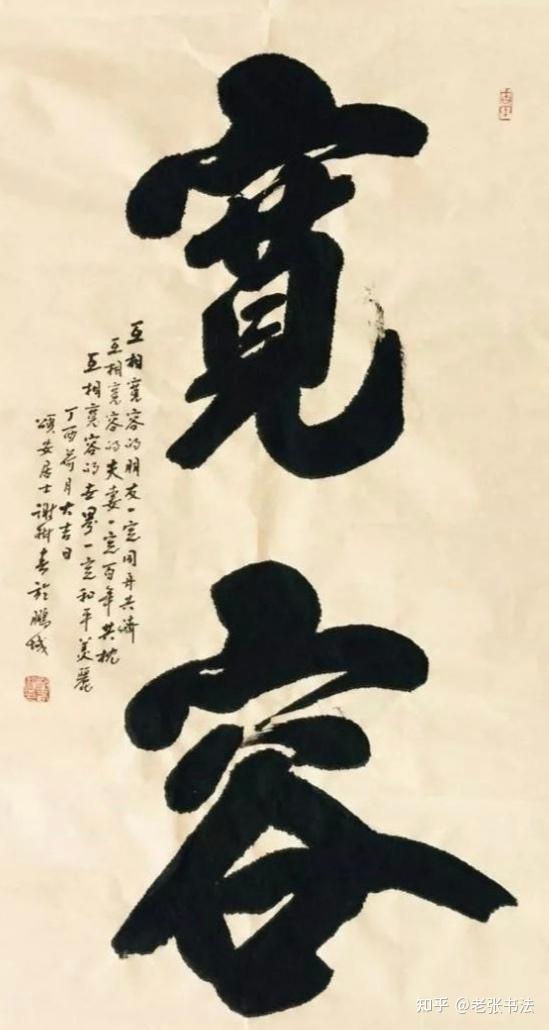 寬
容
互相寬容的朋友一定同舟共濟
互相寬容的夫妻一定百年共枕
互相寬容的世界一定和平美麗
丁酉荷月大吉日
頌安居士謝樹春於鵬城
知乎 @老张书法